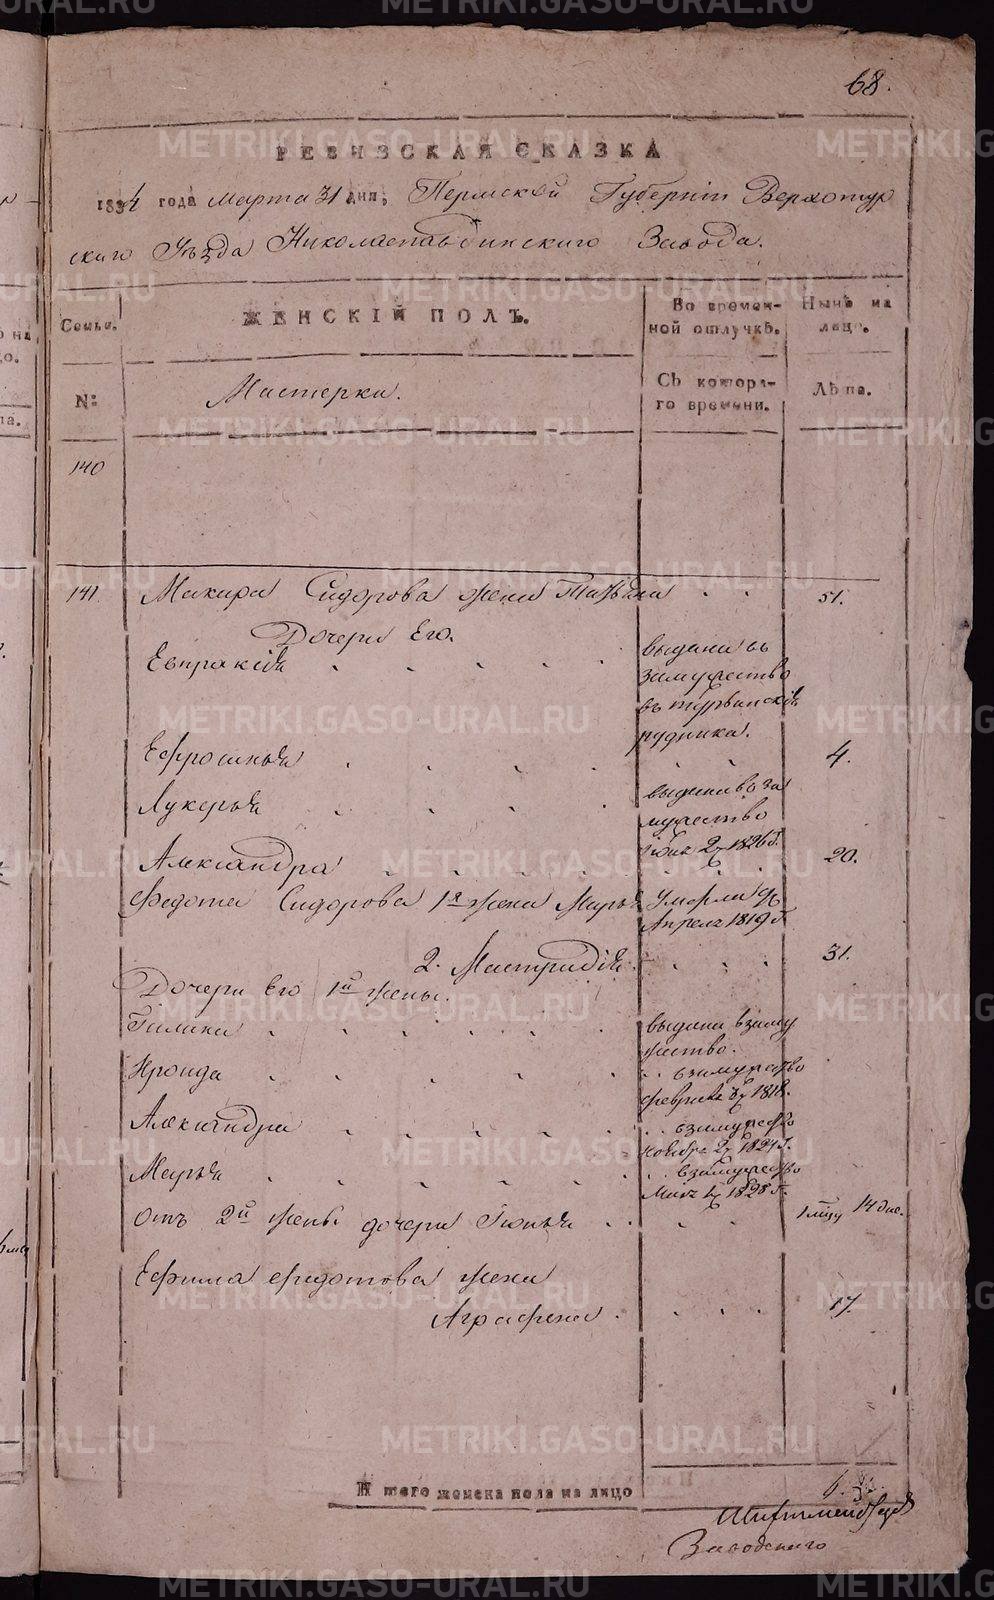 68.
РЕВИЗСКАЯ СКАЗКА
1834 года Марта 31 дня, Пермской Губернiи Верхотур
скаго Уѣзда Николаепавдинскаго Завода.
Семьи.
ЖЕНСКІЙ ПОЛЪ.
Во времен-
ной отлучкѣ.
Нынѣ на
лицо.
№:
Мастерки.
Съ котора-
го времени.
Лѣта.
140
141 Макара Сидорова жена Татьяна 51.
Дочери Его.
Евпраксiя выдана въ
замужество
въ турьинскiя
рудника.
Ефросинья 4.
Лукерья выдана во за
мужество
1826 г.
Александра 20.
Федота Сидорова 1я жена Марья Умерла
Апреля 1819 г.
2. Мастридiя 31.
Дочери Его 1й жены.
выдана в заму
жество.
Ироида в замужество
февраля 1818.
Александра в замужество
Ноября 1824 г.
Марья в замужество
1828 г.
Отъ 2й жены дочери 1 мцу 14 дне.
Ефима Федотова жена
Аграфена 17.
И того женска пола на лицо
6.
Шихтмейстер
Заводскаго
METRIKI.GASO-URAL.RU